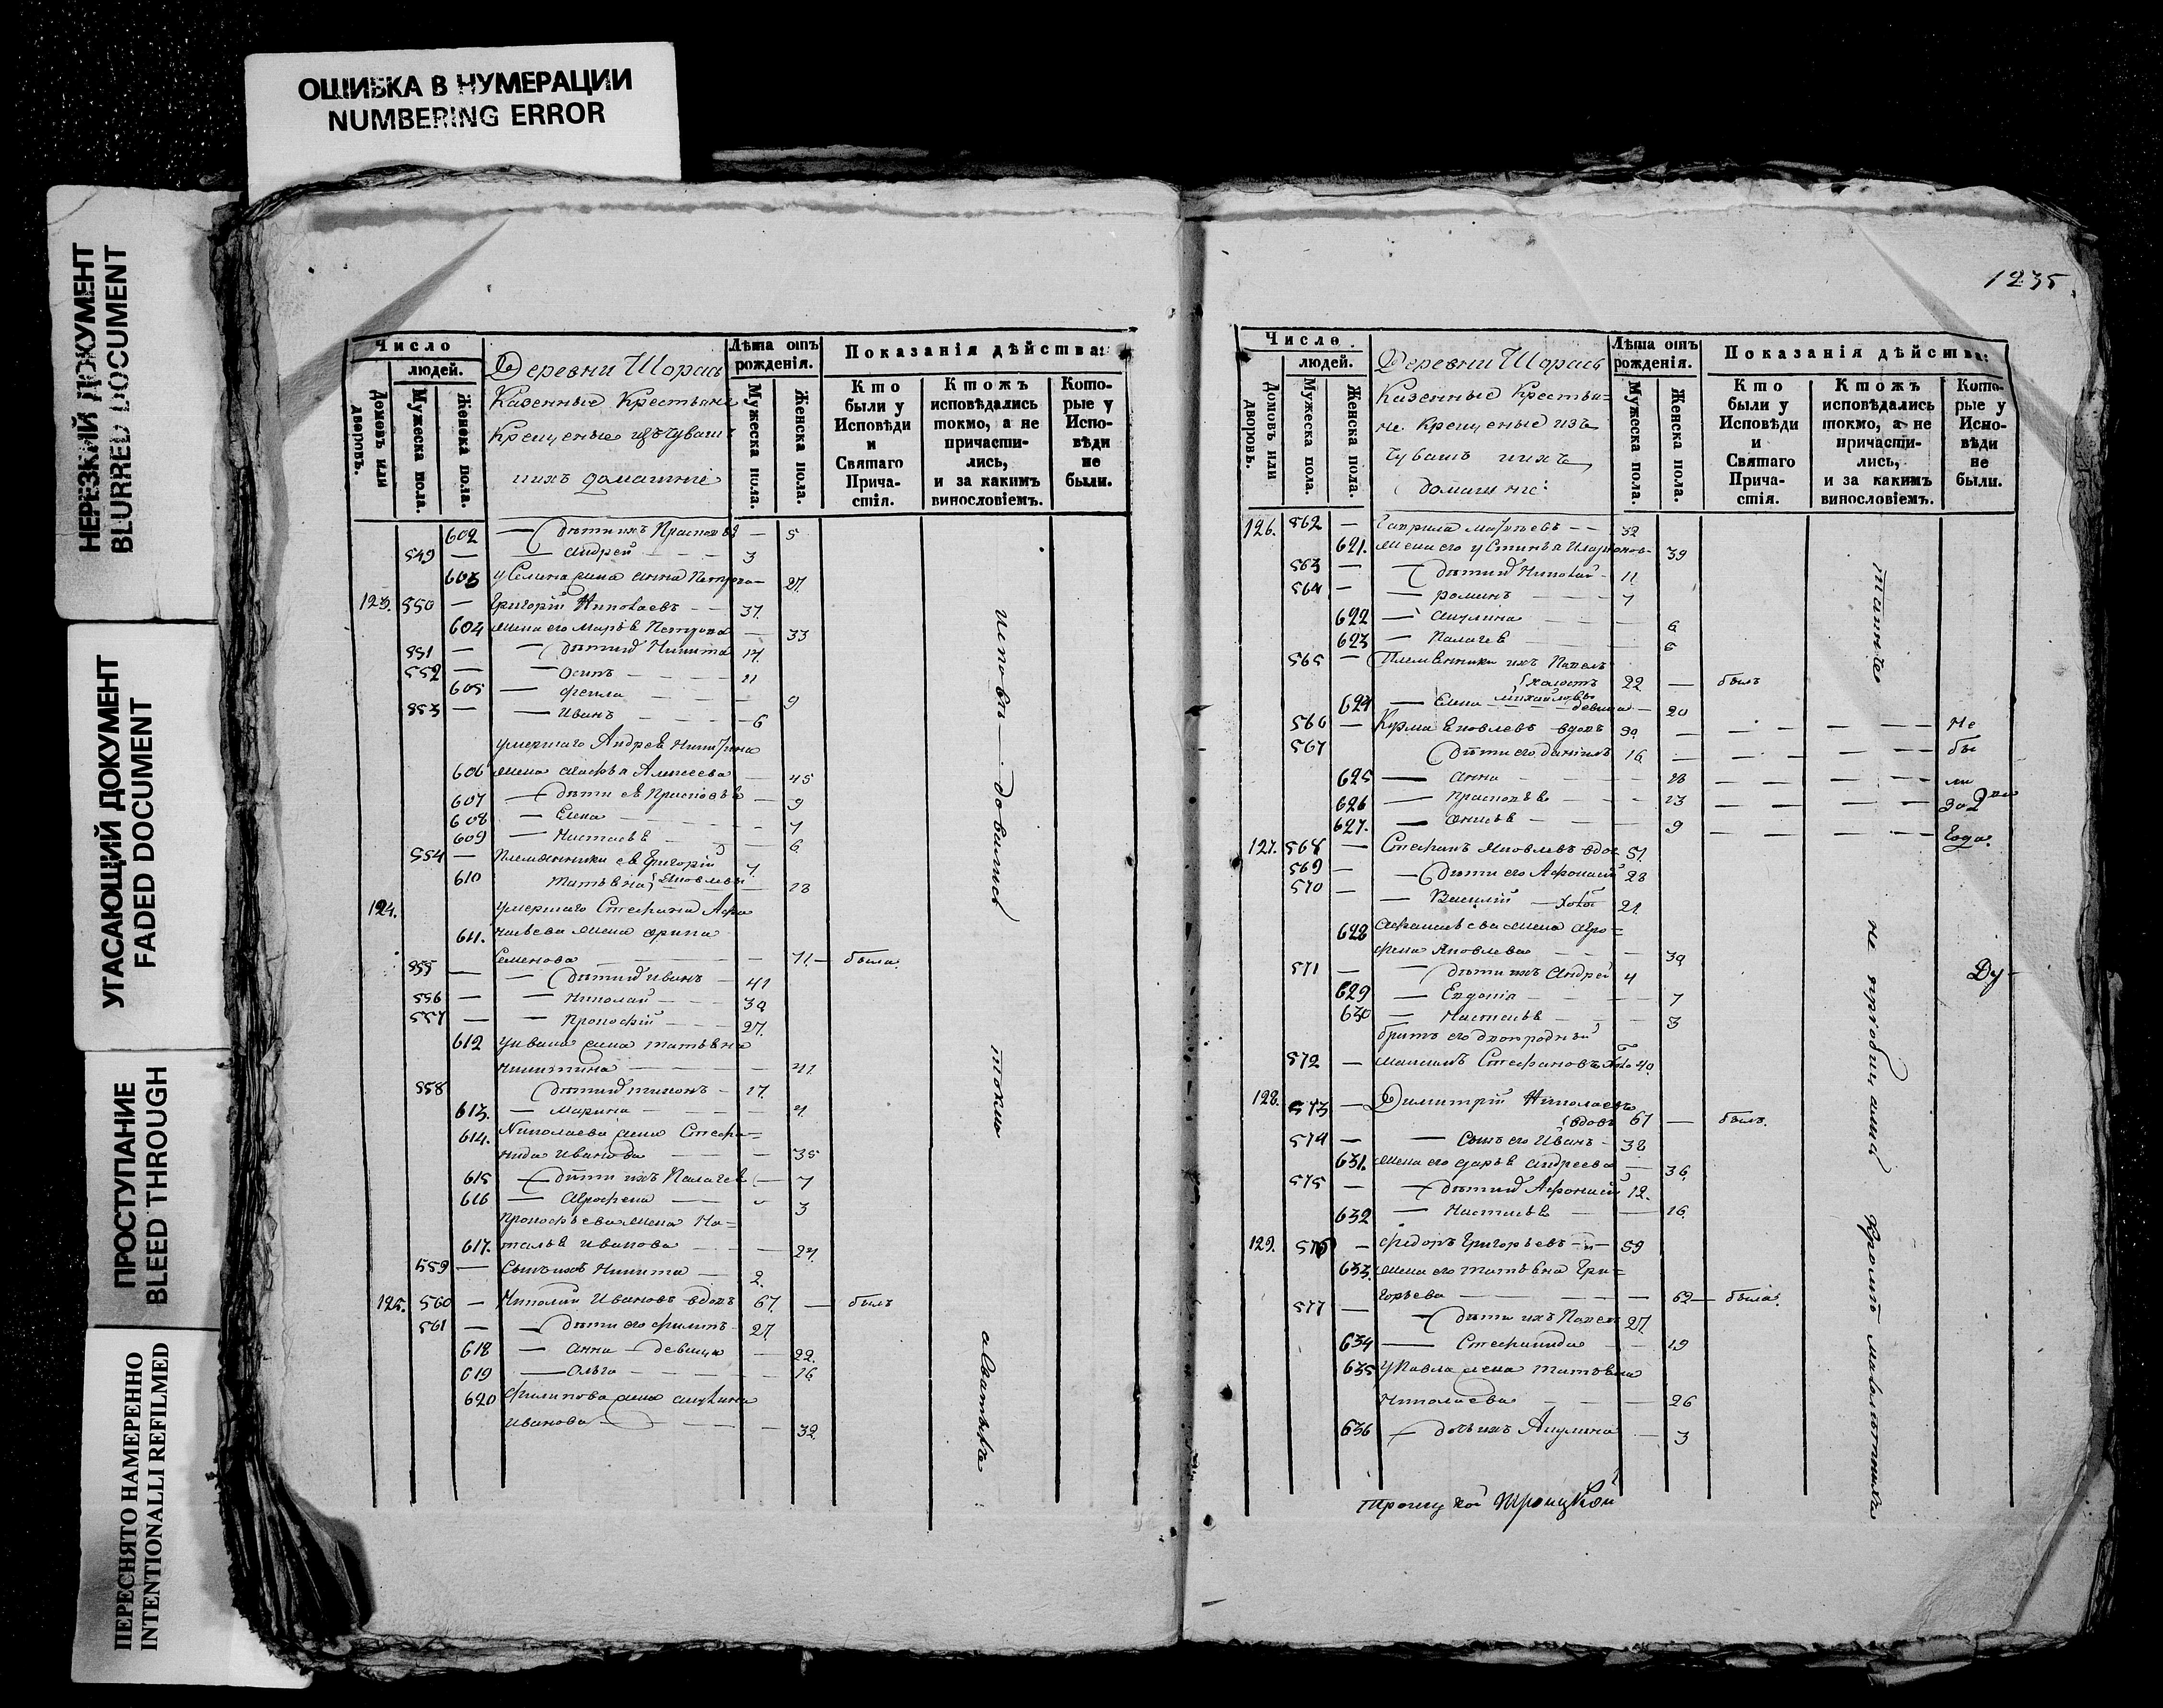 ОШИБКА В НУМЕРАЦИИ
NUMBERING ERROR
НЕРЕЗКИЙ ДОКУМЕНТ
BLURRED DOCUMENT
УГАСАЮЩИЙ ДОКУМЕНТ
FADED DOCUMENT
ПРОСТУПАНИЕ
BLEED THROUGH
ПЕРЕСНЯТО НАМЕРЕННО
INTENTIONALLI REFILMED
Число
людей.
Домовъ или дворовъ.
Мужеска пола.
Женска пола.
Деревни Шорась
Казенные Крестьяне
Крещеные изъ Чувашъ
ихъ домашние
Лѣта отъ рожденія.
Мужеска пола.
Женска пола.
Показанія дѣйства:
Кто были у Исповѣди и Святаго Прича-стія.
Ктожъ исповѣдались токмо, а не причасти-лись, и за какимъ винословіемъ.
Кото-рые у Испо-вѣди не были.
602 — дѣти ихъ — 5
549 — Андрей — 3
603 жена Анна Петрова — 27.
123. 550 — Григорій Николаевъ — 37.
604 жена его Марѳа Петрова — 33
551 — дѣти ихъ Никита 14.
552 — Осипъ — 11
605 — Ѳекла — 9
553 — Иванъ — 6
умершаго Андрея Никитина
606 жена Алексеева — 45
607 — дѣти ея — 9
608 — Елена — 7
609 — Настасья — 6
554 — Племянники ея Григорій 7.
610 Татьяна Яковлевы 18
124. умершаго Стефана
611. жена Ирина
Семенова — 71 — была.
555 — дѣти ея Иванъ — 41
556 — Николай — 39
557 — Прокофій — 27.
612 у Ивана жена Татьяна
Никитина — 41.
558 дѣти ихъ Тихонъ — 17.
613. — Марина — 4
614. Николаева жена Стефа=
нида Иванова — 35
615 — дѣти ихъ Палагея — 7
616 — Агрофена — 3
Прокофьева жена На=
617. талья Иванова — 24.
559 — Сынъ ихъ Никита — 2.
125. 560 — Николай Ивановъ вдовъ 67. — былъ
561 — дѣти его Филипъ 27
618 — Анна — девица — 22.
619 — Ольга — 16
620 Филипова жена Акулина
Иванова — 32.
исповѣ — довались
токмо
а Святыхъ
1235
Число.
людей.
Домовъ или дворовъ.
Мужеска пола.
Женска пола.
Деревни Шорась
Казенные Крестья=
не Крещеные изъ
Чувашъ ихъ
домашние:
Лѣта отъ рожденія.
Мужеска пола.
Женска пола.
Показанія дѣйства:
Кто были у Исповѣди и Святаго Прича-стія.
Ктожъ исповѣдались токмо, а не причасти-лись, и за какимъ винословіемъ.
Кото-рые у Испо-вѣди не были.
126. 562 — Гаврила Матвѣевъ — 32
621. жена его Устинья — 39
563 — дѣти ихъ Николай — 11.
564 — Романъ — 7
622 — Акулина — 6
623 — Палагея — 5
565 — Племянники ихъ Павелъ
холостъ 22 — былъ
624 — Елена Михайловы девица — 20
566 — Козма Яковлевъ вдовъ — Не
567 дѣти его Даніилъ 16 — бы
625 — Анна — 28 — ли
626 — Прасковья — 13 — до 2
627. — Анисья — 9 — Года.
127. 568 — Стефанъ Яковлевъ вдов 51.
569 — дѣти его Афонасій 28
570 — Василій — холос 21.
628 Афанасьева жена Агро=
фена Яковлева — 30
571 — дѣти ихъ Андрей 4
629 — Евдокія — 7
630 — Настасья — 3
братъ его двоюродный
572 — Максимъ Стефановъ 40.
128. 573 — Димитрій Николаевъ
вдовъ 67 — былъ.
574 — Сынъ его Иванъ — 38
631. жена его Дарья Андреева — 36.
575 — дѣти ихъ Афонасій 12.
632 — Настасья — 16.
129. 576 — Ѳедоръ Григорьевъ — 59
633. жена его Татьяна Гри=
горьева — 62 — была.
577 — дѣти ихъ Павелъ 27.
634 — Стефанида — 19
635 у Павла жена Татьяна
Николаева — 26
636 — дочь ихъ Акулина — 3
таинъ
не пріобщались
кромѣ малолѣтныхъ
Ду-
Троицкой Троицкой